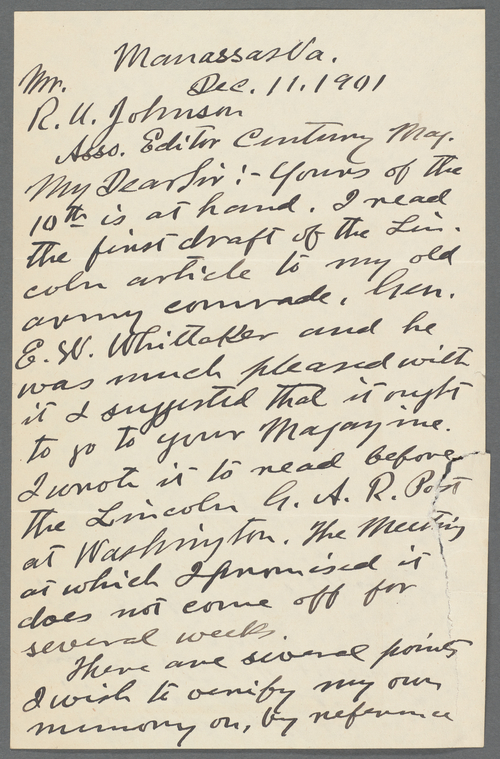 Manassas Va.
Mr. Dec. 11. 1901
R. U. Johnson
Asso. Editor Century Mag.
My Dear Sir :- Yours of the
10th is at hand. I read
the first draft of the Lin-
coln article to my old
army comrade, Gen.
E. W. Whittaker and he
was much pleased with
it & suggested that it ought
to go to your Magazine.
I wrote it to read before
the Lincoln G. A. R. Post
at Washington. The Meeting
at which I promised it
does not come off for
several weeks.
There are several points
I wish to verify my own
memory on, by reference